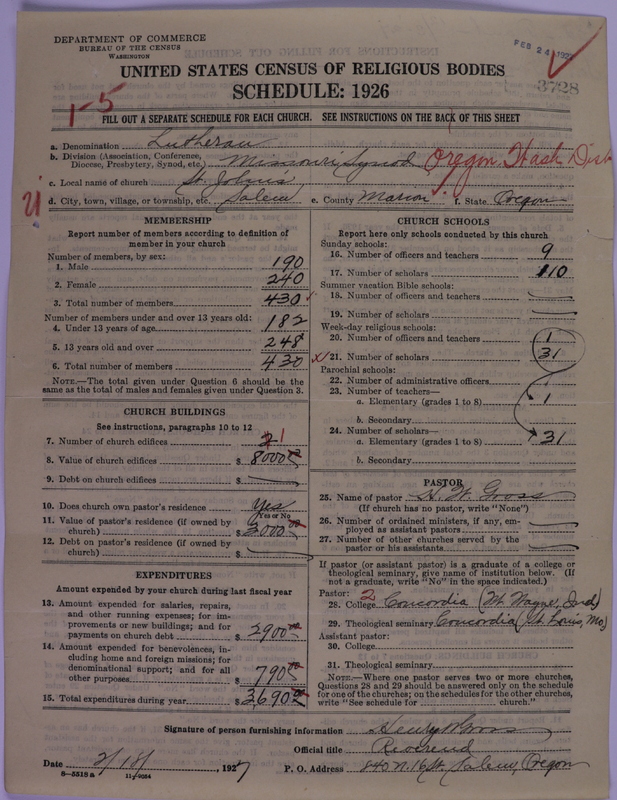 DEPARTMENT OF COMMERCE
BUREAU OF THE CENSUS
WASHINGTON
FEB 24 192
3728
UNITED STATES CENSUS OF RELIGIOUS BODIES
SCHEDULE: 1926
1-5
FILL OUT A SEPARATE SCHEDULE FOR EACH CHURCH. SEE INSTRUCTIONS ON THE BACK OF THIS SHEET
a. Denomination Lutheran
b. Division (Association, Conference, Diocese, Presbytery, Synod, etc.) Missouri Synod Oregon & Wash Dist
c. Local name of church St. John's
d. City, town, village, or township, etc. Salem e. County Marion f. State Oregon
MEMBERSHIP
Report number of members according to definition of
member in your church
Number of members, by sex:
1. Male 190
2. Female 240
3. Total number of members 430
Number of members under and over 13 years old:
4. Under 13 years of age 182
5. 13 years old and over 248
6. Total number of members 430
NOTE.—The total given under Question 6 should be the
same as the total of males and females given under Question 3.
CHURCH BUILDINGS
See instructions, paragraphs 10 to 12
7. Number of church edifices 2 1
8. Value of church edifices $ 8000
9. Debt on church edifices $
10. Does church own pastor's residence Yes
Yes or No
11. Value of pastor's residence (if owned by
church) $ 3000
12. Debt on pastor's residence (if owned by
church) $
EXPENDITURES
Amount expended by your church during last fiscal year
13. Amount expended for salaries, repairs,
and other running expenses; for im-
provements or new buildings; and for
payments on church debt $ 2900
14. Amount expended for benevolences, in-
cluding home and foreign missions; for
denominational support; and for all
other purposes $ 790
15. Total expenditures during year $ 3,690
CHURCH SCHOOLS
Report here only schools conducted by this church
Sunday schools:
16. Number of officers and teachers 9
17. Number of scholars 110
Summer vacation Bible schools:
18. Number of officers and teachers
19. Number of scholars
Week-day religious schools:
20. Number of officers and teachers 1
21. Number of scholars 31
Parochial schools:
22. Number of administrative officers
23. Number of teachers—
a. Elementary (grades 1 to 8) 1
b. Secondary
24. Number of scholars—
a. Elementary (grades 1 to 8) 31
b. Secondary
PASTOR
25. Name of pastor H. W. Gross
(If church has no pastor, write "None")
26. Number of ordained ministers, if any, em-
ployed as assistant pastors
27. Number of other churches served by the
pastor or his assistants
If pastor (or assistant pastor) is a graduate of a college or
theological seminary, give name of institution below. (If
not a graduate, write "No" in the space indicated.)
Pastor: 2
28. College Concordia (Ft. Wayne, Ind)
29. Theological seminary Concordia (St. Louis, Mo)
Assistant pastor:
30. College
31. Theological seminary
NOTE.—Where one pastor serves two or more churches,
Questions 28 and 29 should be answered only on the schedule
for one of the churches; on the schedules for the other churches,
write "See schedule for church."
Signature of person furnishing information Henry W Gross
Official title Reverend
Date 2/18/, 1927 P. O. Address 840 N. 16 St. Salem, Oregon
8—5518 a 11—9084